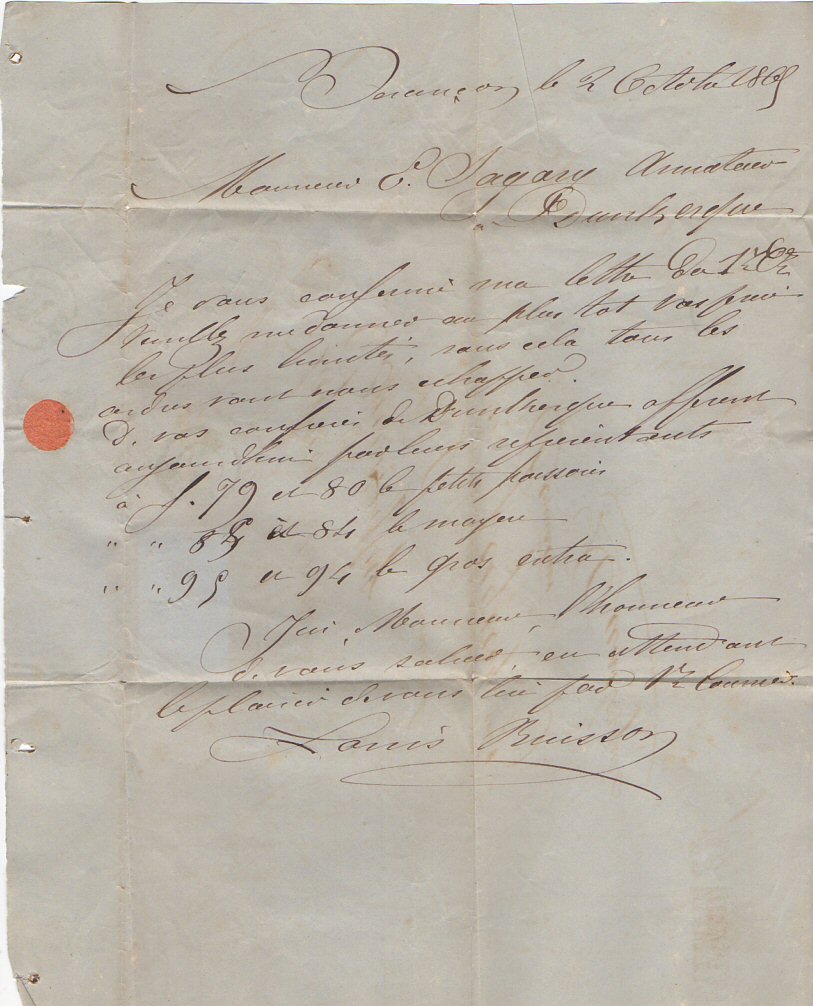 Besançon le 2 Octobre 1865
Monsieur E. Sagary Armateur
à Dunkerque
Je vous confirme ma lettre du 1er Ct
Veuillez me donner au plus tot vos prix
les plus limités, sans cela tous les
ordres vont nous echapper.
D. vos confreres de Dunkerque offrent
aujourdhui par leurs representants
à f. 79 et 80 le petit poisson
" " 85 et 84 le moyen
" " 95 et 94 le gros extra.
J'ai, Monsieur, l'honneur
de vous saluer, en attendant
le plaisir de vous lire par 1er Courrier.
Louis Buisson